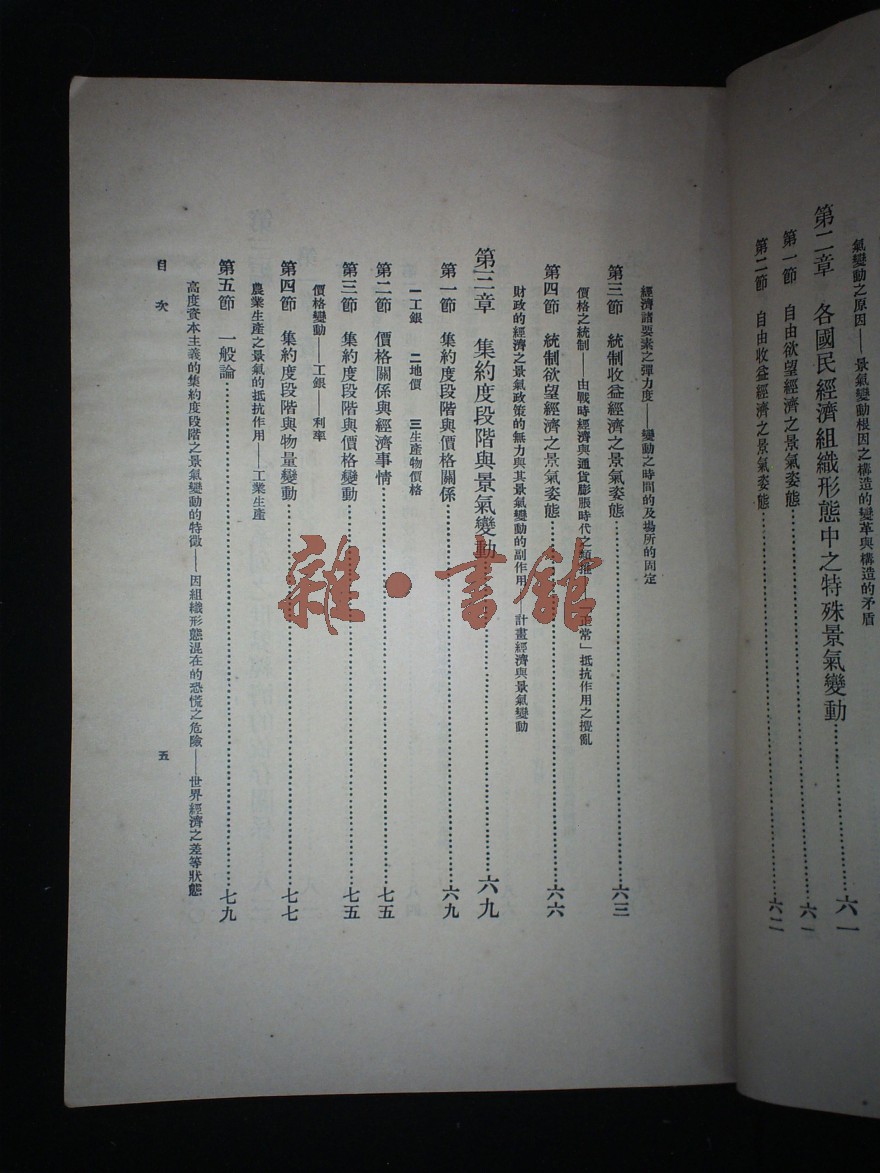 氣變動之原因——景氣變動根因之構造的變革與構造的矛盾
第二章　各國民經濟組織形態中之特殊景氣變動……六一
第一節　自由欲望經濟之景氣姿態……六一
第二節　自由收益經濟之景氣姿態……六二
經濟諸要素之彈力度——變動之時間的及場所的固定
第三節　統制收益經濟之景氣姿態……六三
價格之統制——由戰時經濟與通貨膨脹時代之類推——「正常」抵抗作用之攪亂
第四節　統制欲望經濟之景氣姿態……六六
財政的經濟之景氣政策的無力與其景氣變動的副作用——計畫經濟與景氣變動
第三章　集約度段階與景氣變動……六九
第一節　集約度段階與價格關係……六九
一工銀　二地價　三生產物價格
第二節　價格關係與經濟事情……七五
第三節　集約度段階與價格變動……七五
價格變動——工銀——利率
第四節　集約度段階與物量變動……七七
農業生產之景氣的抵抗作用——工業生產
第五節　一般論……七九
高度資本主義的集約度段階之景氣變動的特徵——因組織形態混在的恐慌之危險——世界經濟之差等狀態
目次
五
雜·書館